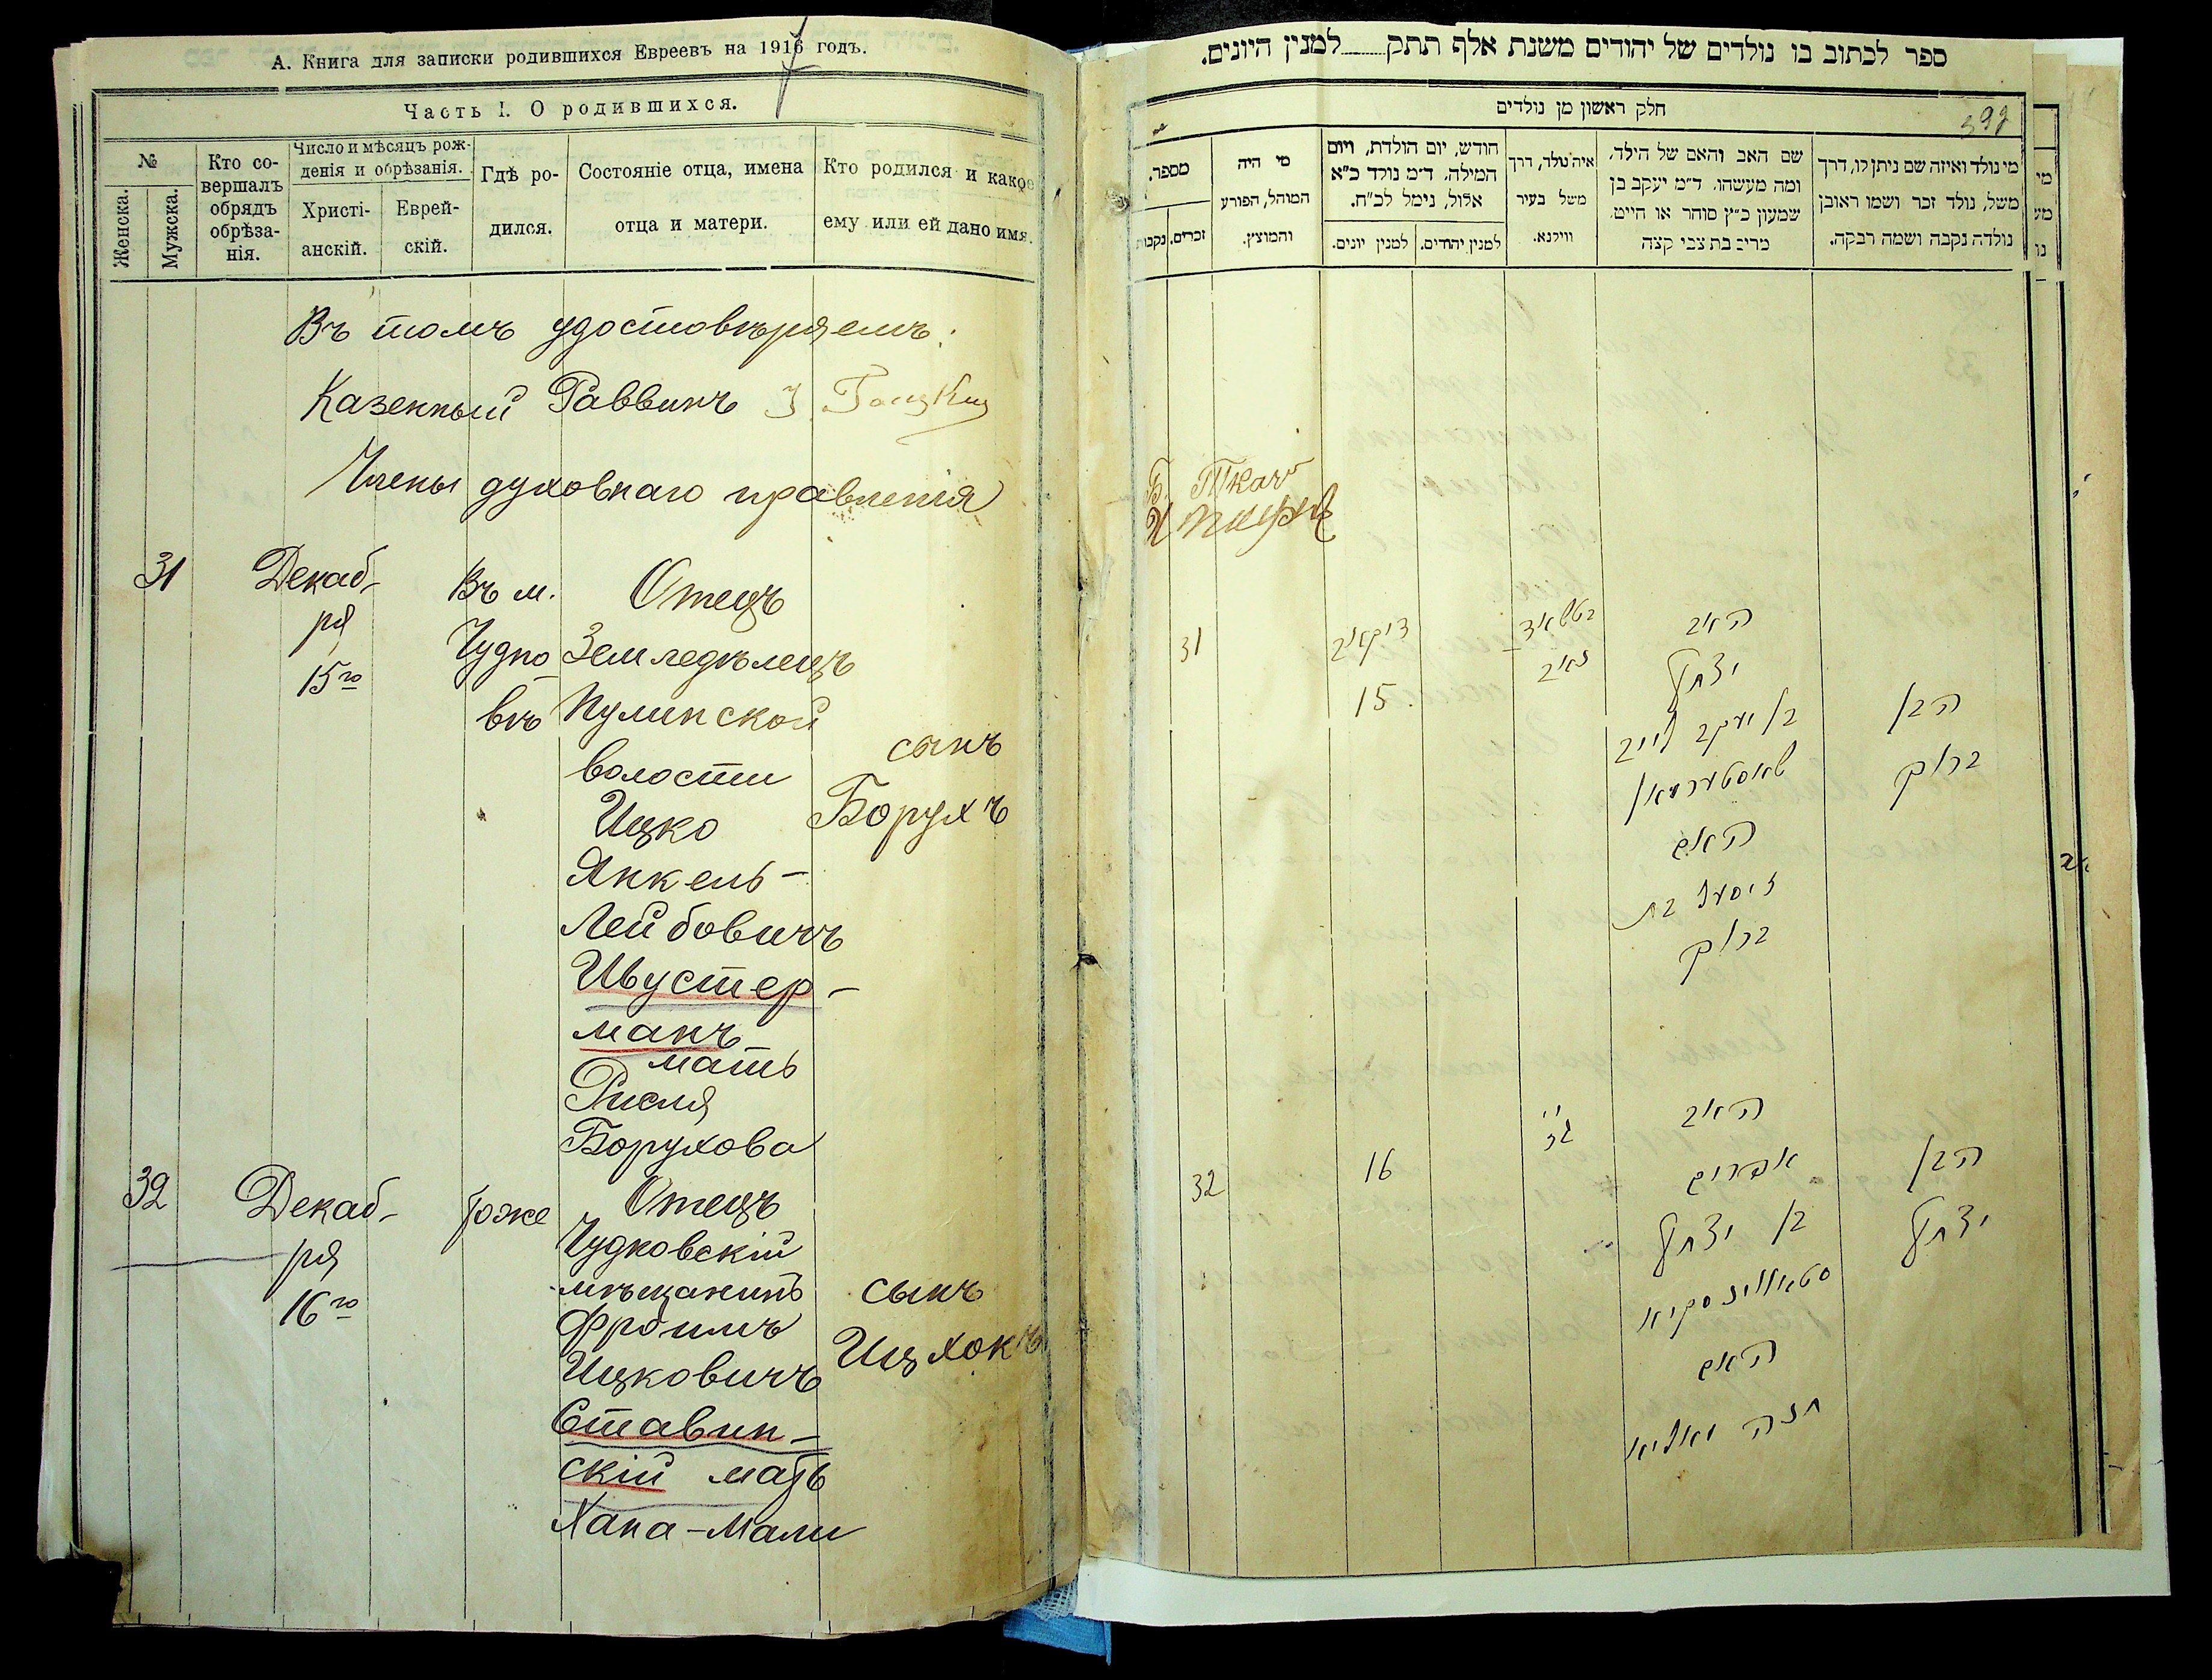 А. Книга для записки родившихся Евреевъ на 1917 годъ.
Часть I. О родившихся.
№
Женска.
Мужска.
Кто со-
вершалъ
обрядъ
обрѣза-
нія.
Число и мѣсяцъ рож-
денія и обрѣзанія.
Христі-
анскій.
Еврей-
скій.
Гдѣ ро-
дился.
Состояніе отца, имена
отца и матери.
Кто родился и какое
ему или ей дано имя.
Въ томъ удостовѣряемъ:
Казенный Раввинъ
Члены духовнаго правленія
31
Декаб-
ря
15го
Въ м.
Чудно
вѣ
Отецъ
Земледѣлецъ
Пулинской
волости
Ицко
Янкель-
Лейбовичъ
Шустер-
манъ
мать
Рисля
Борухова
сынъ
Борухъ
32
Декаб-
ря
16го
тоже
Отецъ
Чудновскій
мѣщанинъ
Фроимъ
Ицковичъ
Ставин-
скій мать
Хана-Мали
сынъ
Ицхокъ
ספר לכתוב בו נולדים של יהודים משנת אלף תתק למנין היונים.
חלק ראשון מן נולדים
מי נולד ואיזה שם ניתן לו, דרך
משל, נולד זכר ושמו ראובן
נולדה נקבה ושמה רבקה.
שם האב והאם של הילד,
ומה מעשהו. ד״מ יעקב בן
שמעון כ״ץ סוחר או חייט.
מרים בת צבי קצה
איה נולד, דרך
משל בעיר
ווילנא.
חודש, יום הולדת, ויום
המילה. ד״מ נולד כ״א
אלול, נימל לכ״ח.
למנין יהודים.
למנין יונים.
מי היה
המוהל, הפורע
והמוצץ.
מספר.
זכרים.
נקבות
Б. Ткач
31
דיקאב
15.
האב
יצחק
בן יעקב לייב
שוסטערמאן
האם
בת
ברוך
הבן
ברוך
32
16
האב
אפרים
בן יצחק
האם
חנה
הבן
יצחק